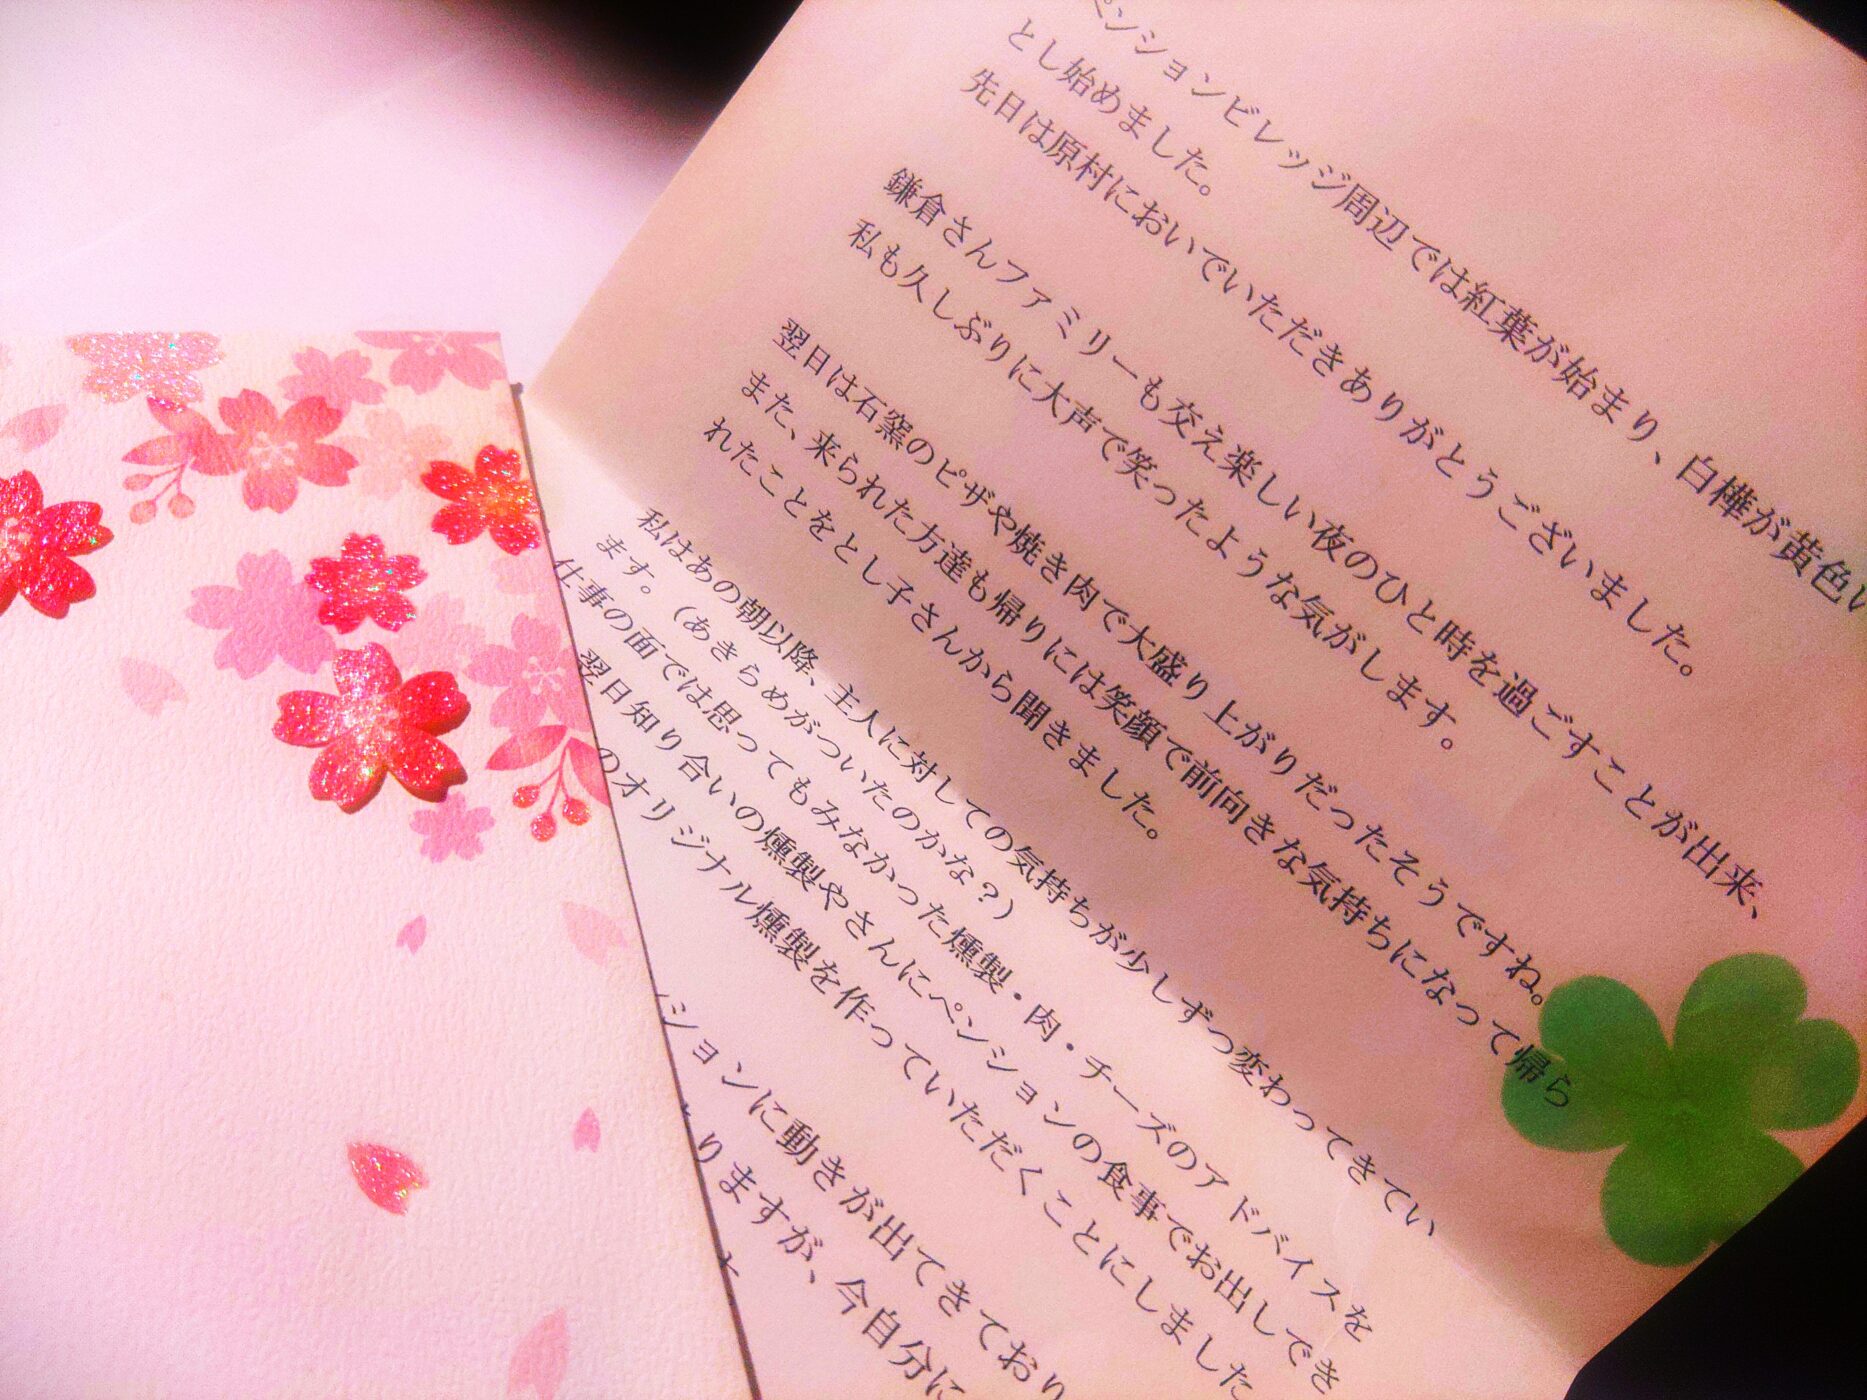 ペンションビレッジ周辺では紅葉が始まり、白樺が黄色い
とし始めました。
先日は原村においでいただきありがとうございました。
鎌倉さんファミリーも交え楽しい夜のひと時を過ごすことが出来、
私も久しぶりに大声で笑ったような気がします。
翌日は石窯のピザや焼き肉で大盛り上がりだったそうですね。
また、来られた方達も帰りには笑顔で前向きな気持ちになって帰ら
れたことをとし子さんから聞きました。
私はあの朝以降、主人に対しての気持ちが少しずつ変わってきてい
ます。（あきらめがついたのかな？）
仕事の面では思ってもみなかった燻製・肉・チーズのアドバイスを
翌日知り合いの燻製やさんにペンションの食事でお出しでき
のオリジナル燻製を作っていただくことにしました
ションに動きが出てきており
りますが、今自分に